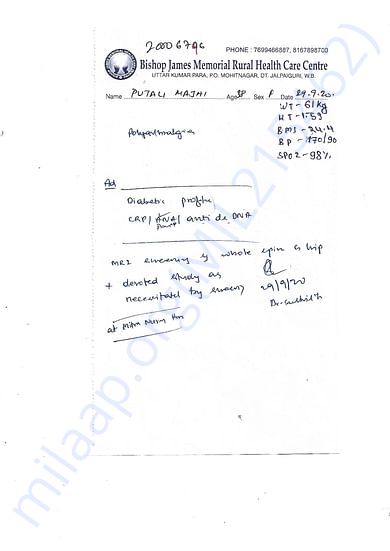 PHONE : 7699466887, 8167898700
Bishop James Memorial Rural Health Care Centre
UTTAR KUMAR PARA, P.O. MOHITNAGAR, DT. JALPAIGURI, W.B.
Name PUTALI MAJHI Age 38 Sex F Date 29.9.20.
WT - 61kg
HT - 1.59
BMI - 24.4
BP - 170/90
SPO2 - 98%
Polyarthralgia
Ad
Diabetic profile
CRP / ANA / anti ds DNA
MRI screening of whole spine & hip
+ devoted study as
necessitated by
29/9/20
at Mitra
milaap.org